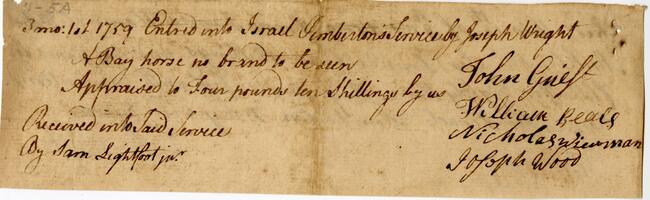 3 mo: 1st 1759 Entred into Israel Pemberton's Service by Joseph Wright
A Bay horse no brand to be seen
Appraised to Four pounds ten Shillings by us
John Guest
William Beals
Nicholas Wierman
Joseph Wood
Received into Said Service
By Sam Lightfoot junr